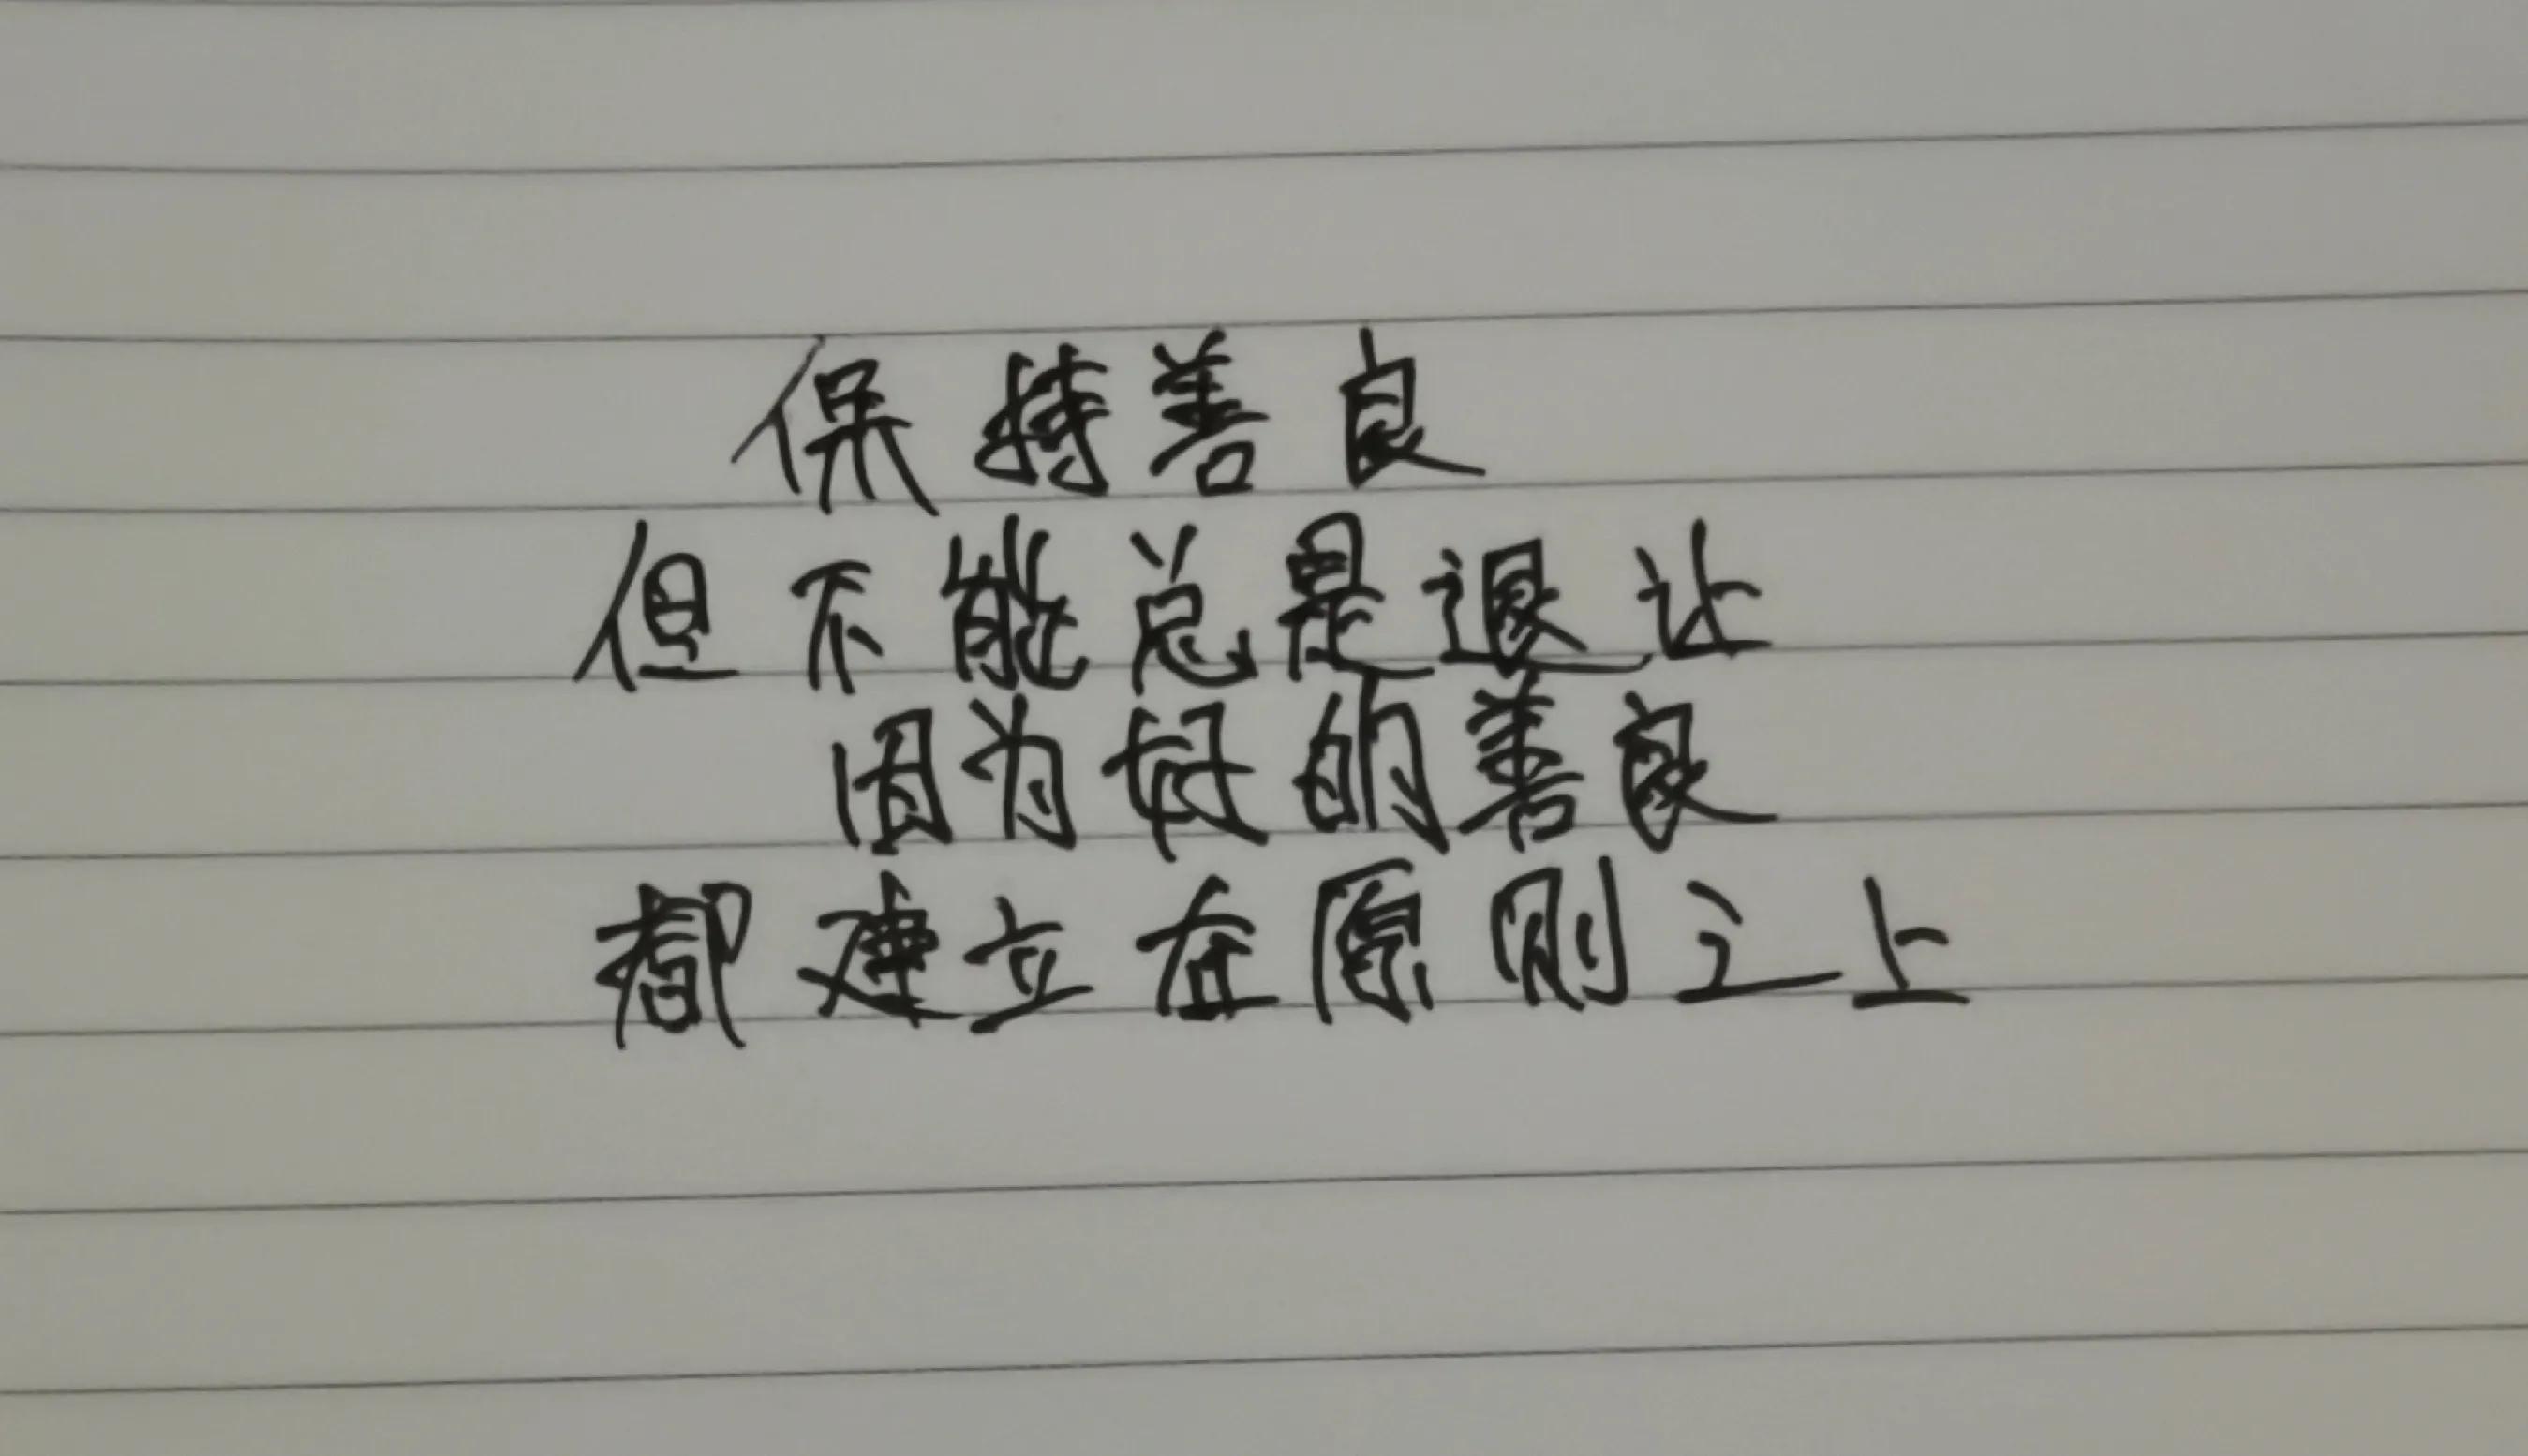 保持善良
但不能总是退让
因为好的善良
都建立在原则之上